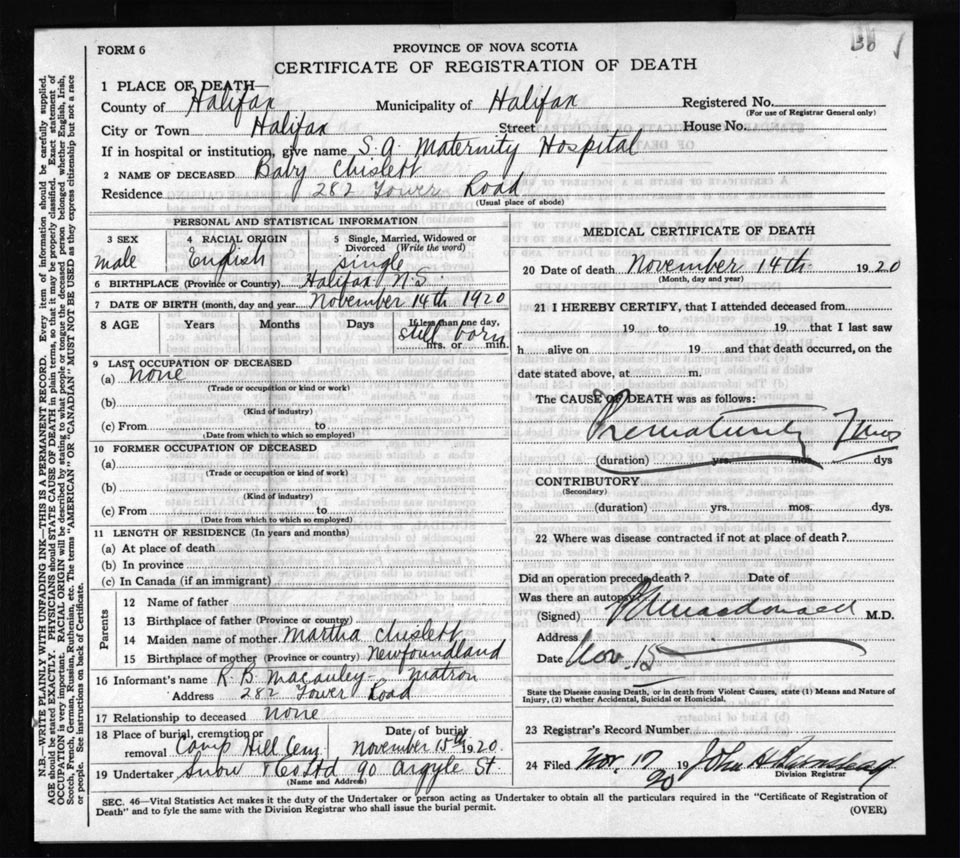 FORM 6
PROVINCE OF NOVA SCOTIA
CERTIFICATE OF REGISTRATION OF DEATH
1 PLACE OF DEATH—
County of Halifax Municipality of Halifax Registered No.
(For use of Registrar General only)
City or Town Halifax Street House No.
If in hospital or institution, give name S.A. Maternity Hospital
2 NAME OF DECEASED Baby Chislett
Residence 282 Tower Road
(Usual place of abode)
PERSONAL AND STATISTICAL INFORMATION
3 SEX 4 RACIAL ORIGIN 5 Single, Married, Widowed or
Divorced (Write the word)
male English single
6 BIRTHPLACE (Province or Country) Halifax N.S.
7 DATE OF BIRTH (month, day and year) November 14th 1920
8 AGE Years Months Days If less than one day,
still born
hrs. or min.
9 LAST OCCUPATION OF DECEASED
(a) none
(Trade or occupation or kind or work)
(b)
(Kind of industry)
(c) From to
(Date from which to which so employed)
10 FORMER OCCUPATION OF DECEASED
(a)
(Trade or occupation or kind of work)
(b)
(Kind of industry)
(c) From to
(Date from which to which so employed)
11 LENGTH OF RESIDENCE (In years and months)
(a) At place of death
(b) In province
(c) In Canada (if an immigrant)
Parents
12 Name of father
13 Birthplace of father (Province or country)
14 Maiden name of mother Martha Chislett
15 Birthplace of mother (Province or country) Newfoundland
16 Informant's name R. B. Macauley - matron
Address 282 Tower Road
17 Relationship to deceased none
18 Place of burial, cremation or
removal Camp Hill Cem
Date of burial
November 15th 1920.
19 Undertaker Snow & Co Ltd 90 Argyle St.
(Name and Address)
MEDICAL CERTIFICATE OF DEATH
20 Date of death November 14th 1920
(Month, day and year)
21 I HEREBY CERTIFY, that I attended deceased from
19 to 19 that I last saw
h alive on 19 and that death occurred, on the
date stated above, at m.
The CAUSE OF DEATH was as follows:
Prematurity
(duration) yrs. mos. dys
CONTRIBUTORY
(Secondary)
(duration) yrs. mos. dys.
22 Where was disease contracted if not at place of death?
Did an operation precede death? Date of
Was there an autopsy?
(Signed) Macdonald M.D.
Address
Date Nov. 15
State the Disease causing Death, or in death from Violent Causes, state (1) Means and Nature of
Injury, (2) whether Accidental, Suicidal or Homicidal.
23 Registrar's Record Number
24 Filed Nov. 17 19 20 John H.
Division Registrar
SEC. 46—Vital Statistics Act makes it the duty of the Undertaker or person acting as Undertaker to obtain all the particulars required in the "Certificate of Registration of
Death" and to fyle the same with the Division Registrar who shall issue the burial permit.
(OVER)
N.B.—WRITE PLAINLY WITH UNFADING INK—THIS IS A PERMANENT RECORD. Every item of information should be carefully supplied.
AGE should be stated EXACTLY. PHYSICIANS should STATE CAUSE OF DEATH in plain terms, so that it may be properly classified. Exact statement of
OCCUPATION is very important. RACIAL ORIGIN will be described by stating to what people or tongue the deceased person belonged whether English, Irish,
Scotch, French, German, Russian, Ruthenian, etc. The terms "AMERICAN" OR "CANADIAN" MUST NOT BE USED as they express citizenship but not a race
or people. See instructions on back of Certificate.